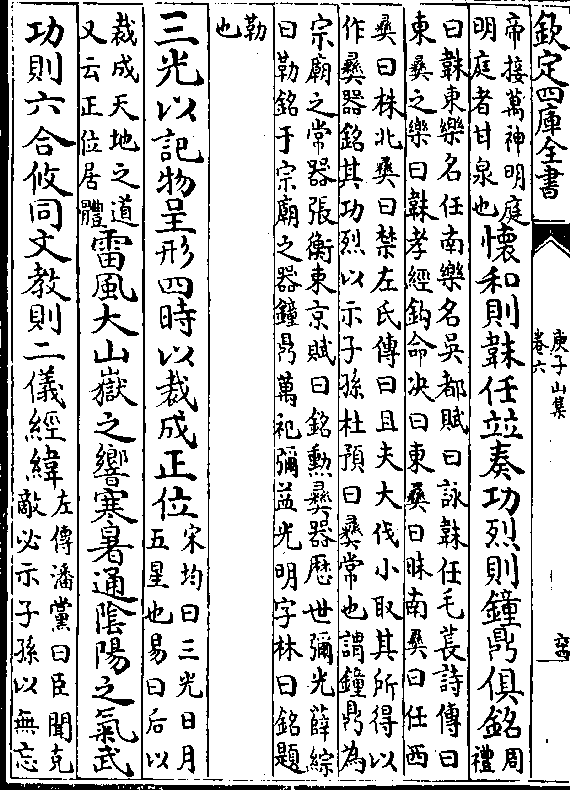 欽定四庫全書
庾子山集
卷六
帝接萬神明庭
明庭者甘泉也
懷和則韎任竝奏功烈則鐘鼎俱銘
周
禮
曰韎東樂名任南樂名吳都賦曰詠韎任毛萇詩傳曰
東彞之樂曰韎孝經鈎命决曰東彞曰昧南彞曰任西
彞曰株北彞曰禁左氏傳曰且夫大伐小取其所得以
作彞器銘其功烈以示子孫杜預曰彞常也謂鐘鼎為
宗廟之常器張衡東京賦曰銘勲彞器歴世彌光薛綜
曰勒銘于宗廟之器鐘鼎萬祀彌益光明字林曰銘題
勒
也
三光以記物呈形四時以裁成正位
宋均曰三光日月
五星也易曰后以
裁成天地之道
又云正位居體
雷風大山嶽之響寒暑通隂陽之氣武
功則六合攸同文教則二儀經緯
左傳潘黨曰臣聞克
敵必示子孫以無忘